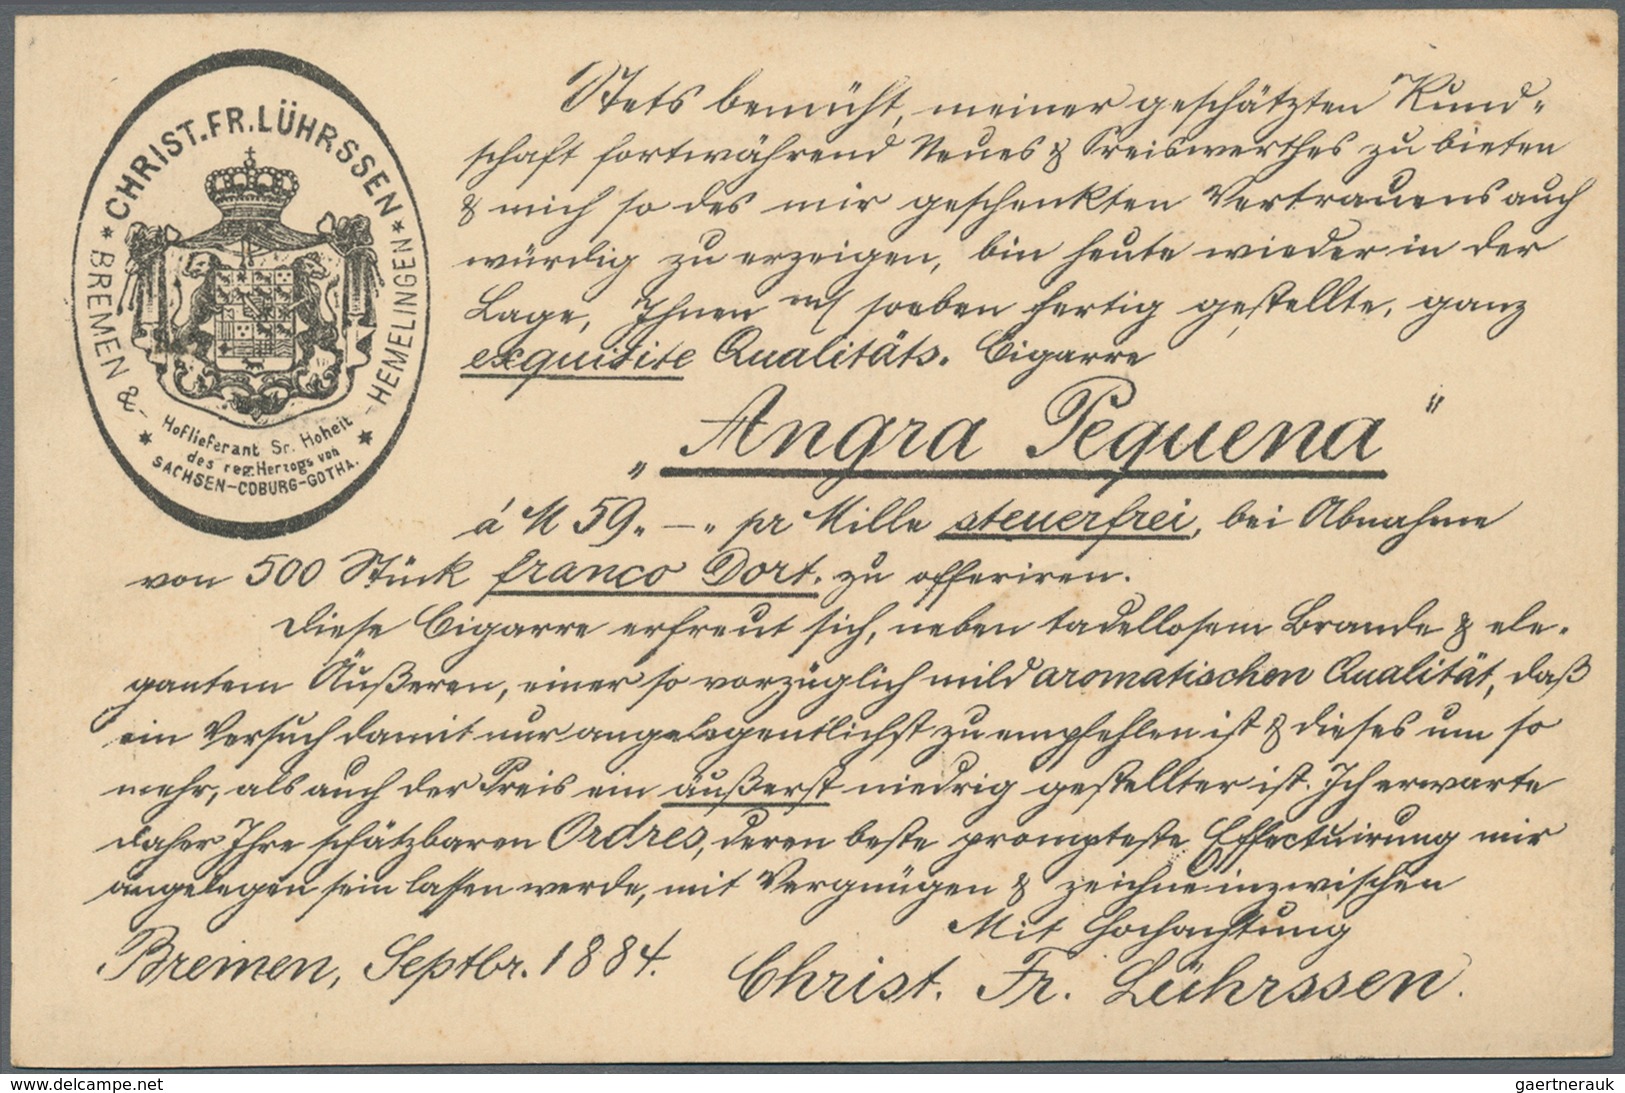 * CHRIST. FR. LÜHRSSEN *
BREMEN & HEMELINGEN
Hoflieferant Sr. Hoheit
des reg. Herzogs von
* SACHSEN-COBURG-GOTHA. *
Stets bemüht, meiner geschätzten Kund-
schaft fortwährend Neues & Preiswerthes zu bieten
& mich so des mir geschenkten Vertrauens auch
würdig zu erzeigen, bin heute wieder in der
Lage, Ihnen soeben fertig gestellte, ganz
exquisite Qualitäts-Cigarre
„Angra Pequena"
á M 59.-. pr Mille steuerfrei, bei Abnahme
von 500 Stück franco Dort. zu offeriren.
Diese Cigarre erfreut sich, neben tadellosem Brande & ele-
gantem Äußeren, einer so vorzüglich mild aromatischen Qualität, daß
ein Versuch damit nur angelegentlichst zu empfehlen ist & dieses um so
mehr, als auch der Preis ein äußerst niedrig gestellter ist. Ich erwarte
daher Ihre schätzbaren Ordres, deren beste prompteste Effectuirung mir
angelegen sein lassen werde, mit Vergnügen & zeichne inzwischen
Mit Hochachtung
Bremen, Septbr. 1884. Christ. Fr. Lührssen.
www.delcampe.net
gaertnerauk